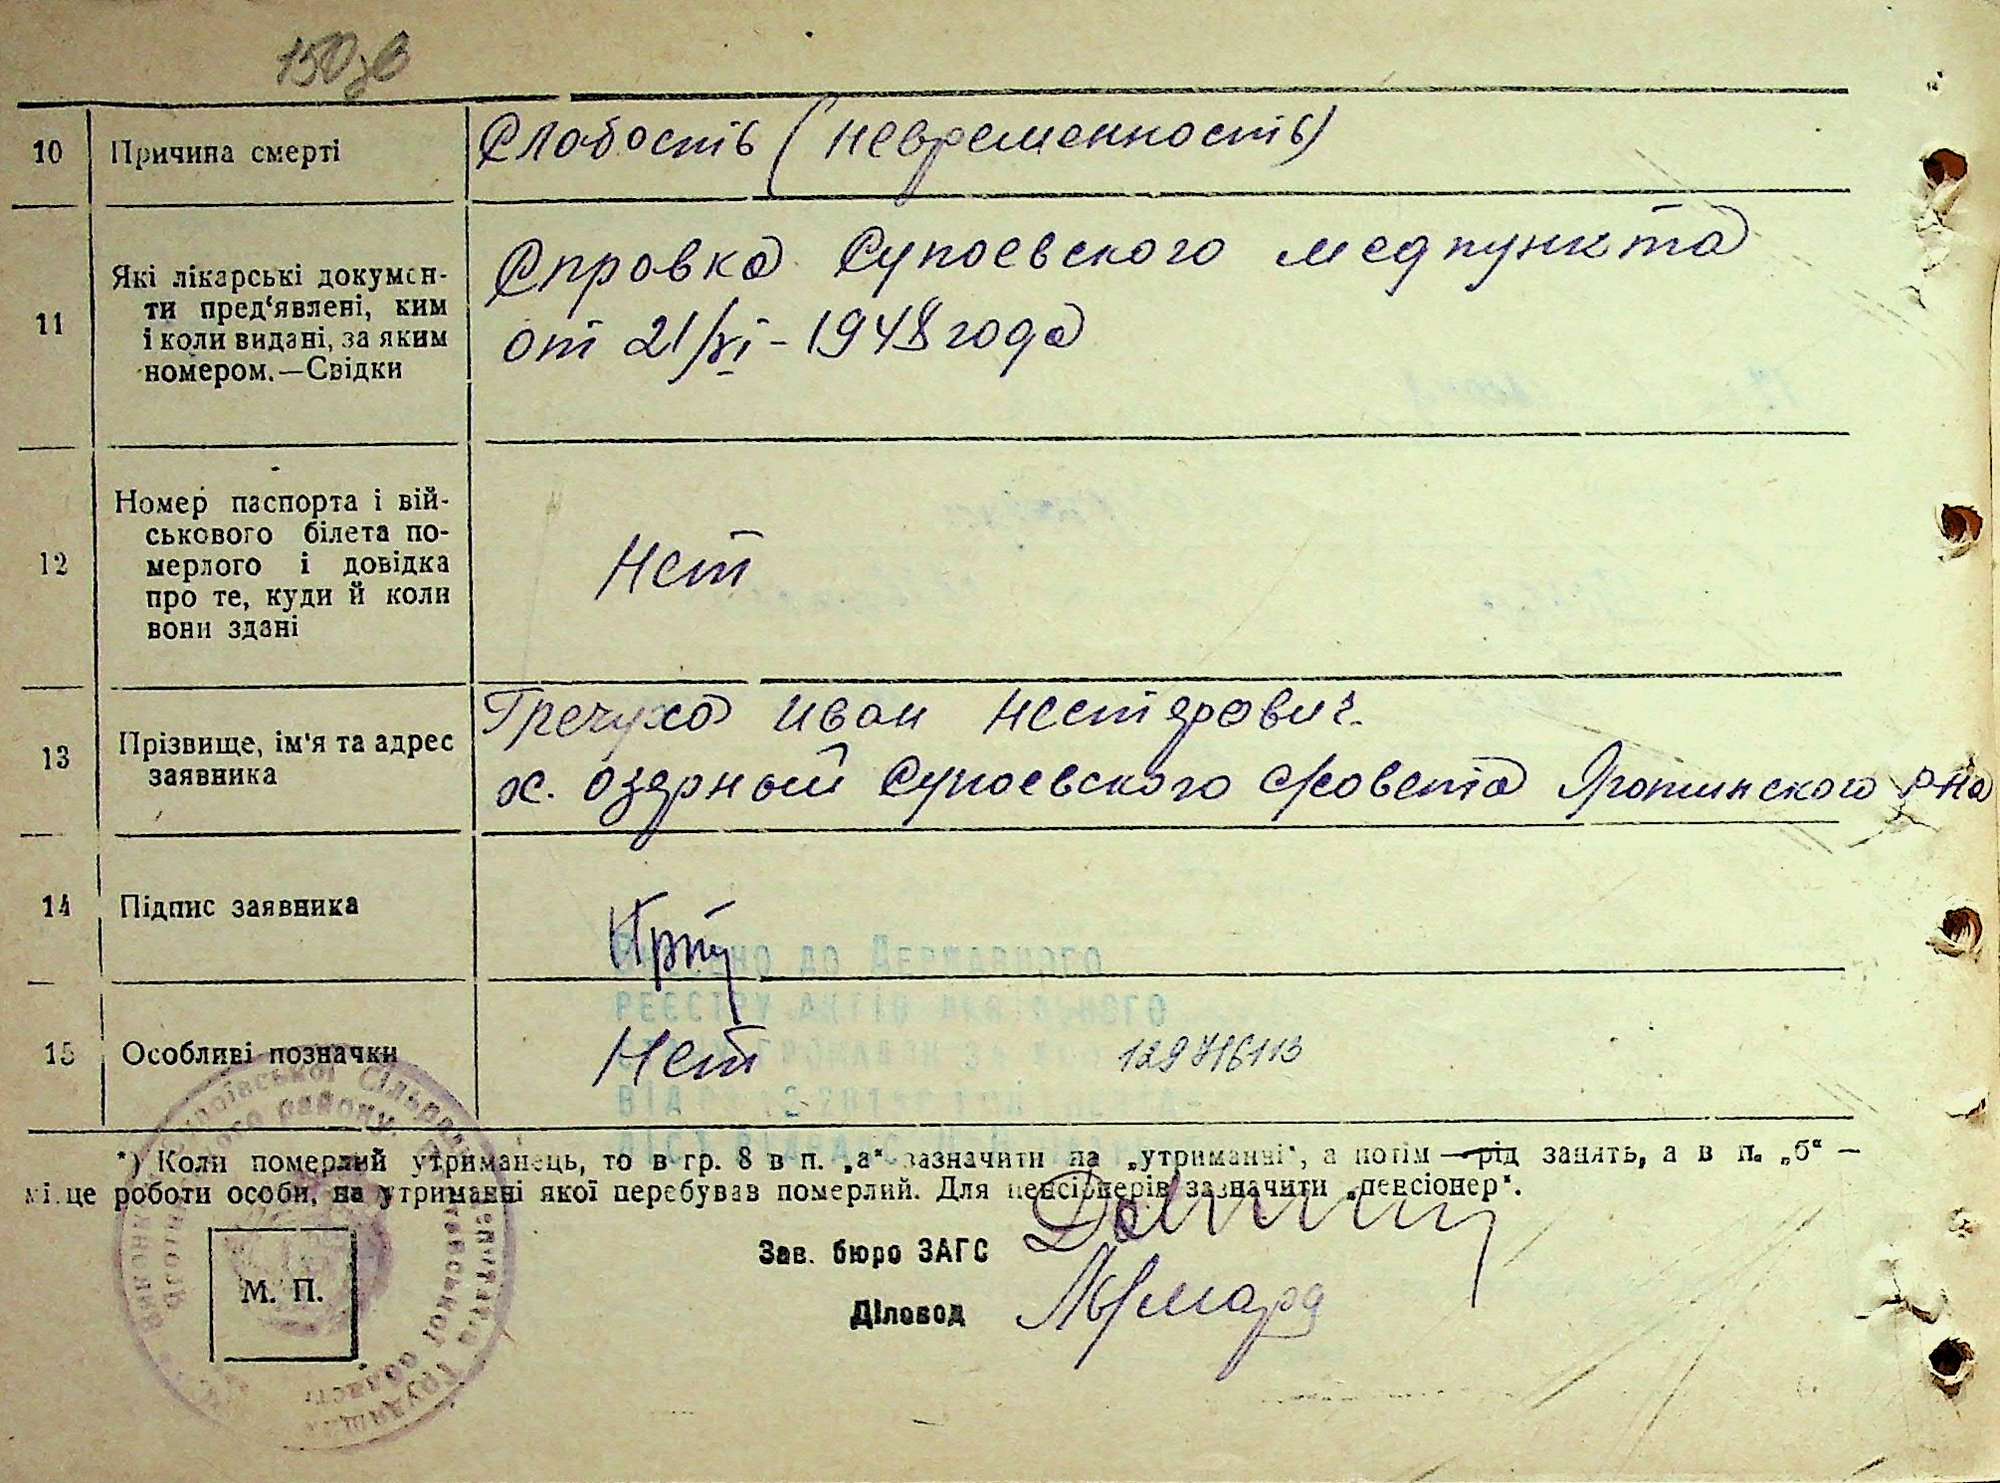 150зв
10 Причина смерті Слабость (невременность)
11 Які лікарські докумен-
ти пред‘явлені, ким
і коли видані, за яким
номером.—Свідки
Справка Супоевского медпункта
от 21/VI - 1948 года
12 Номер паспорта і вій-
ськового білета по-
мерлого і довідка
про те, куди й коли
вони здані
Нет
13 Прізвище, ім'я та адрес
заявника
Гречуха Иван Нестярович.
х. Озярный Супоевского с/совета Яготинского р-на
14 Підпис заявника
15 Особливі позначки Нет
до Державного
реєстру актів
*) Коли померлий утриманець, то в гр. 8 в п. „а“ зазначити на „утриманні“, а потім — рід занять, а в п. „б“ —
місце роботи особи, на утриманні якої перебував померлий. Для пенсіонерів зазначити „пенсіонер“.
Зав. бюро ЗАГС
Діловод
М. П.